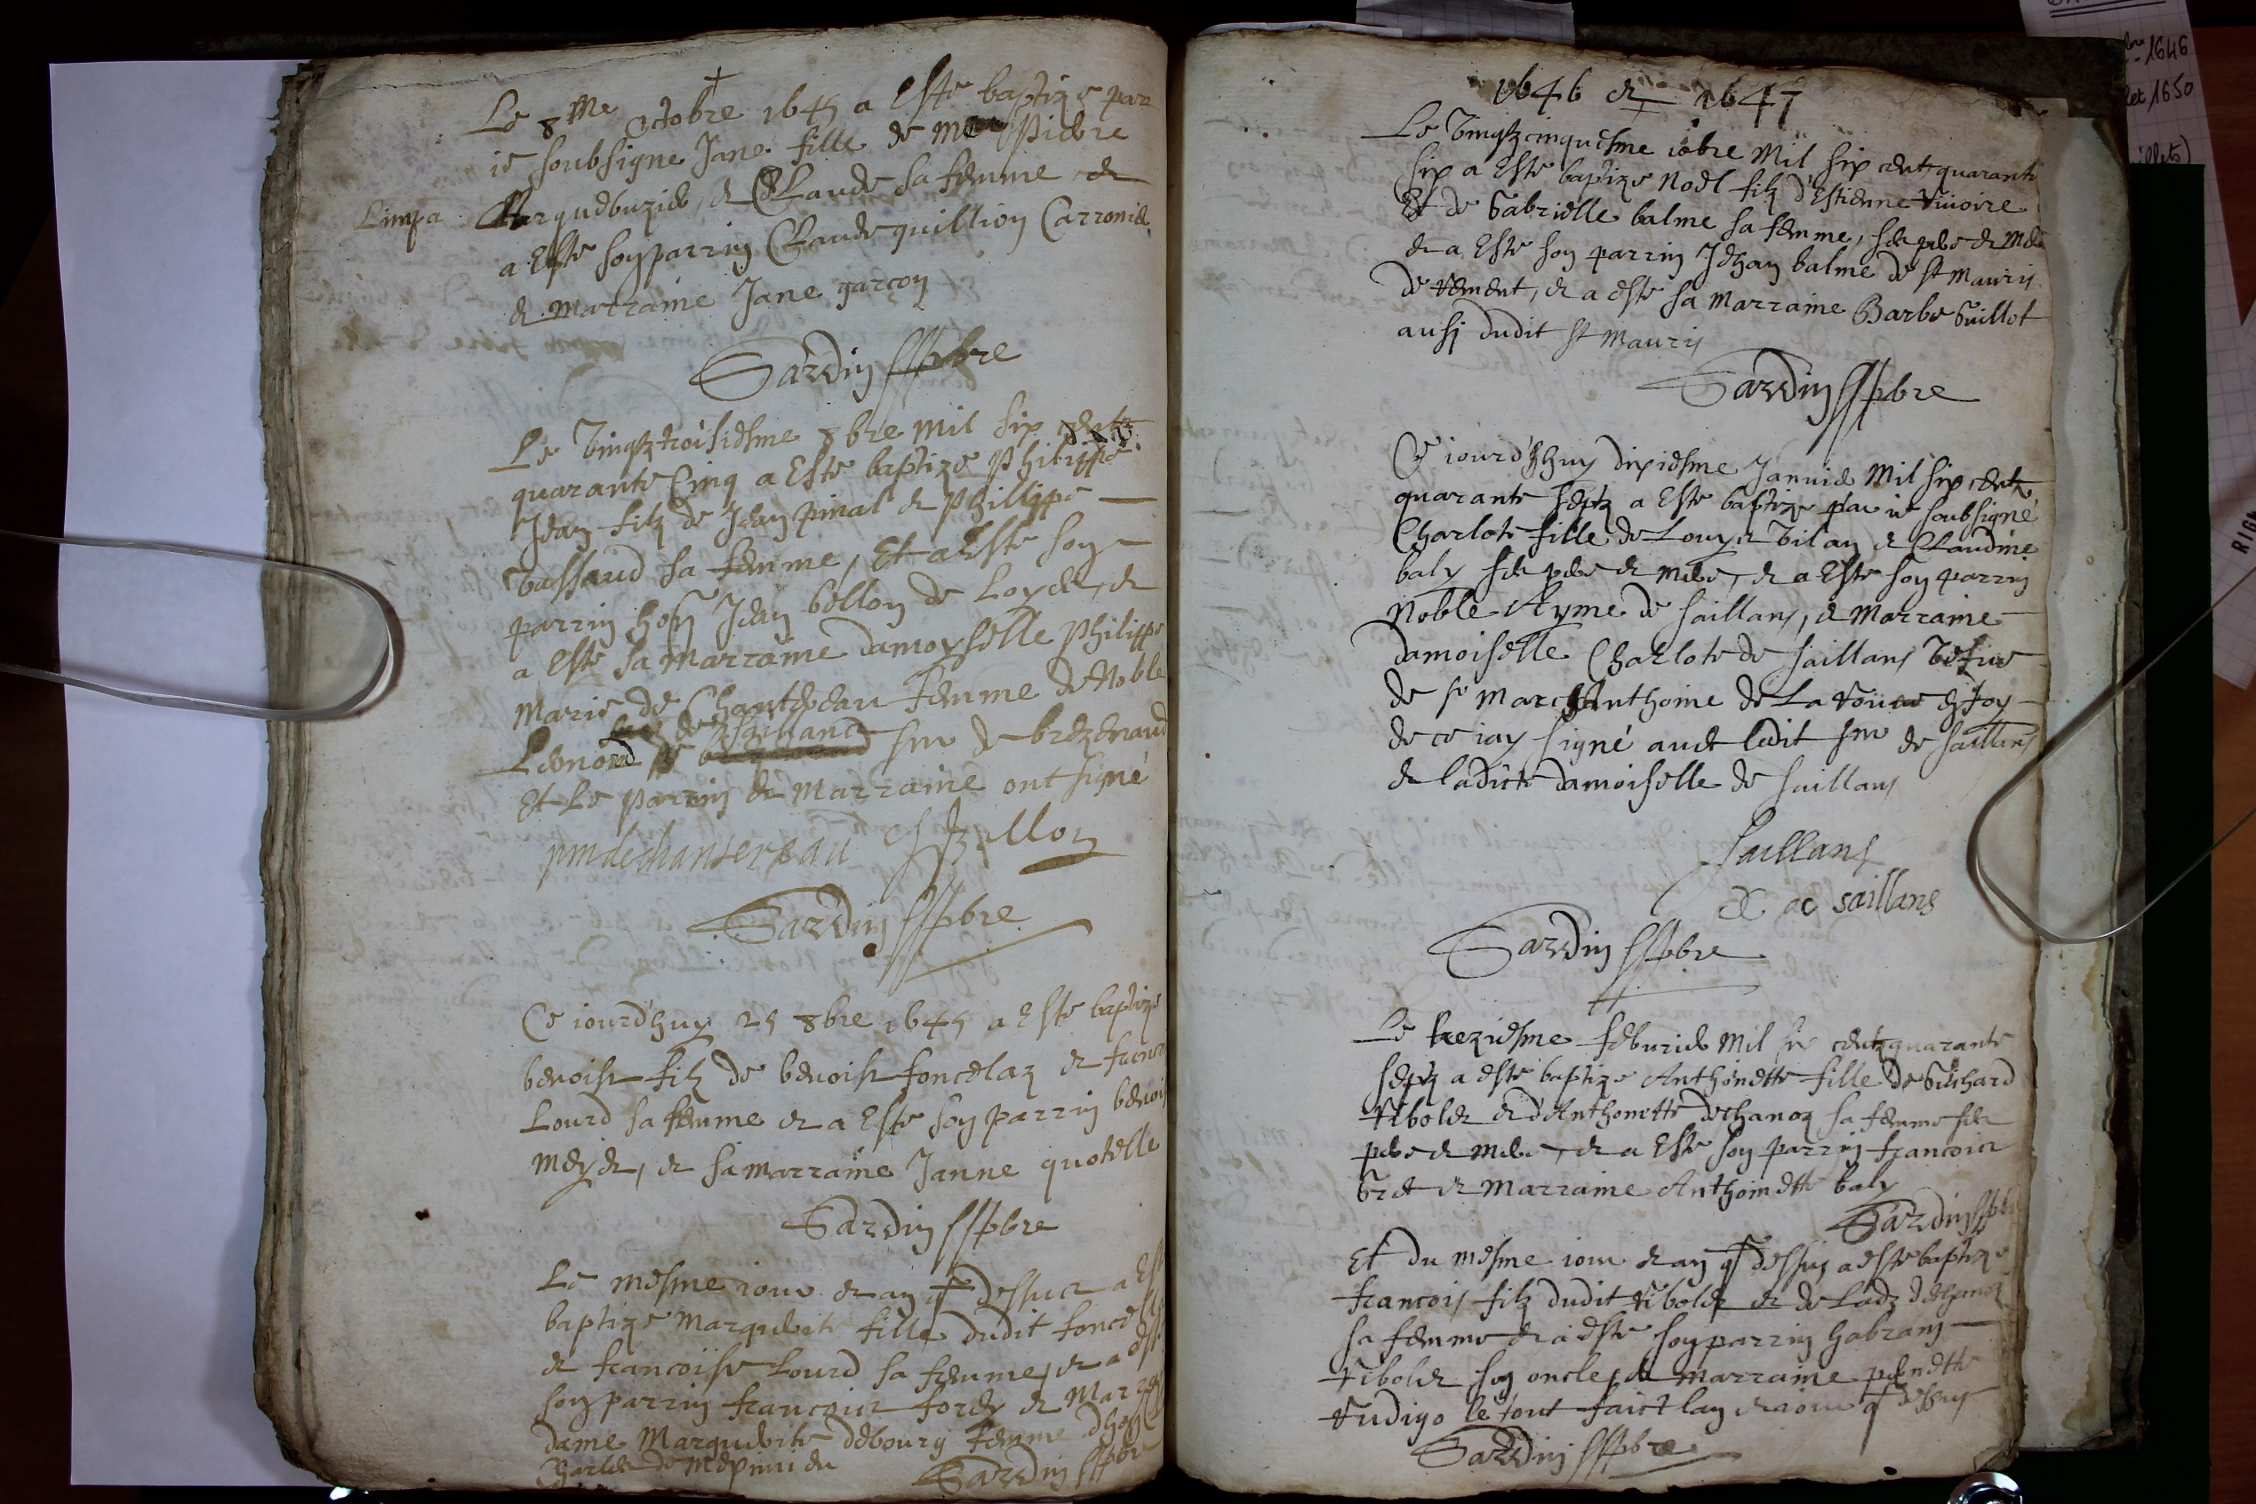 Le 8me octobre 1645 a Este baptize par
ie soubsigne Jane fille de Pierre
Limpa Arquebuzier, et Claude sa femme et
a Este son parrin Claude quillion Carronier
et marraine Jane garcon
Sardin pbre
Le vingtztroisiesme 8bre mil six centz
quarante Cinq a Este baptize philippe
Jean filz de Jean pinat et phillipe
vassaud sa femme, Et a Este son
parrin hon Jean bellon de Loyes, et
a Este sa marraine damoyselle philippe
marie de Chantereau femme de Noble
Leonord de saillans sr de brezenaud
Et Le parrin et Marraine ont signé
pmdechantereau J Bellon
Sardin pbre
Ce iourd'huy 25 8bre 1645 a Este baptize
benoist filz de benoist foncelaz et
Lourd sa femme et a Este son parrin benoi
meyer, et sa marraine Janne quotelle
Sardin pbre
Le mesme iour et an q dessus a Est
baptize Marguerite fille dudit fonce
et francoise Lourd sa femme, et a est
son parrin francois forey et Mar
dame Marguerite debourg femme d'hon
Charles de
Sardin pbre
1646 et 1647
Le vingtzcinquesme xbre Mil six centz quarante
six a Este baptize Noel filz d'Estienne
Et de Gabrielle balme sa femme, ses pere et mere
et a Este son parrin Jehan balme de st Mauris
de rement, et a este sa marraine Barbe Guillot
ausi dudit st Mauris
Sardin pbre
Ce iourd'huy dixiesme Janvier Mil six centz
quarante septz a Este baptize par ie soubsigné
Charlote fille de Louys vilan et Claudine
baly ses pere et mere, et a Este son parrin
Noble Ayme de saillans, et Marraine
damoiselle Charlote de saillans vefue
de sr Marc Anthoine de La en foy
de ce iay signé auec ledit sr de saillans
et ladicte damoiselle de saillans
Saillans
saillans
Sardin pbre
Le treziesme feburier Mil six centz quarante
septz a este baptize Anthonette fille de Guichard
tibolet et d'Anthonette dechanoz sa femme ses
pere et mere, et a Este son parrin francois
Gret et marraine Anthoinette baly
Sardin pbre
Et du mesme iour et an q dessus a este baptize
francois filz dudit tibolet et de Ladz dechanoz
sa femme et a este son parrin gabrany
tibolet son oncle, et marraine pernette
le tout faict lan et iour q dessus
Sardin pbre